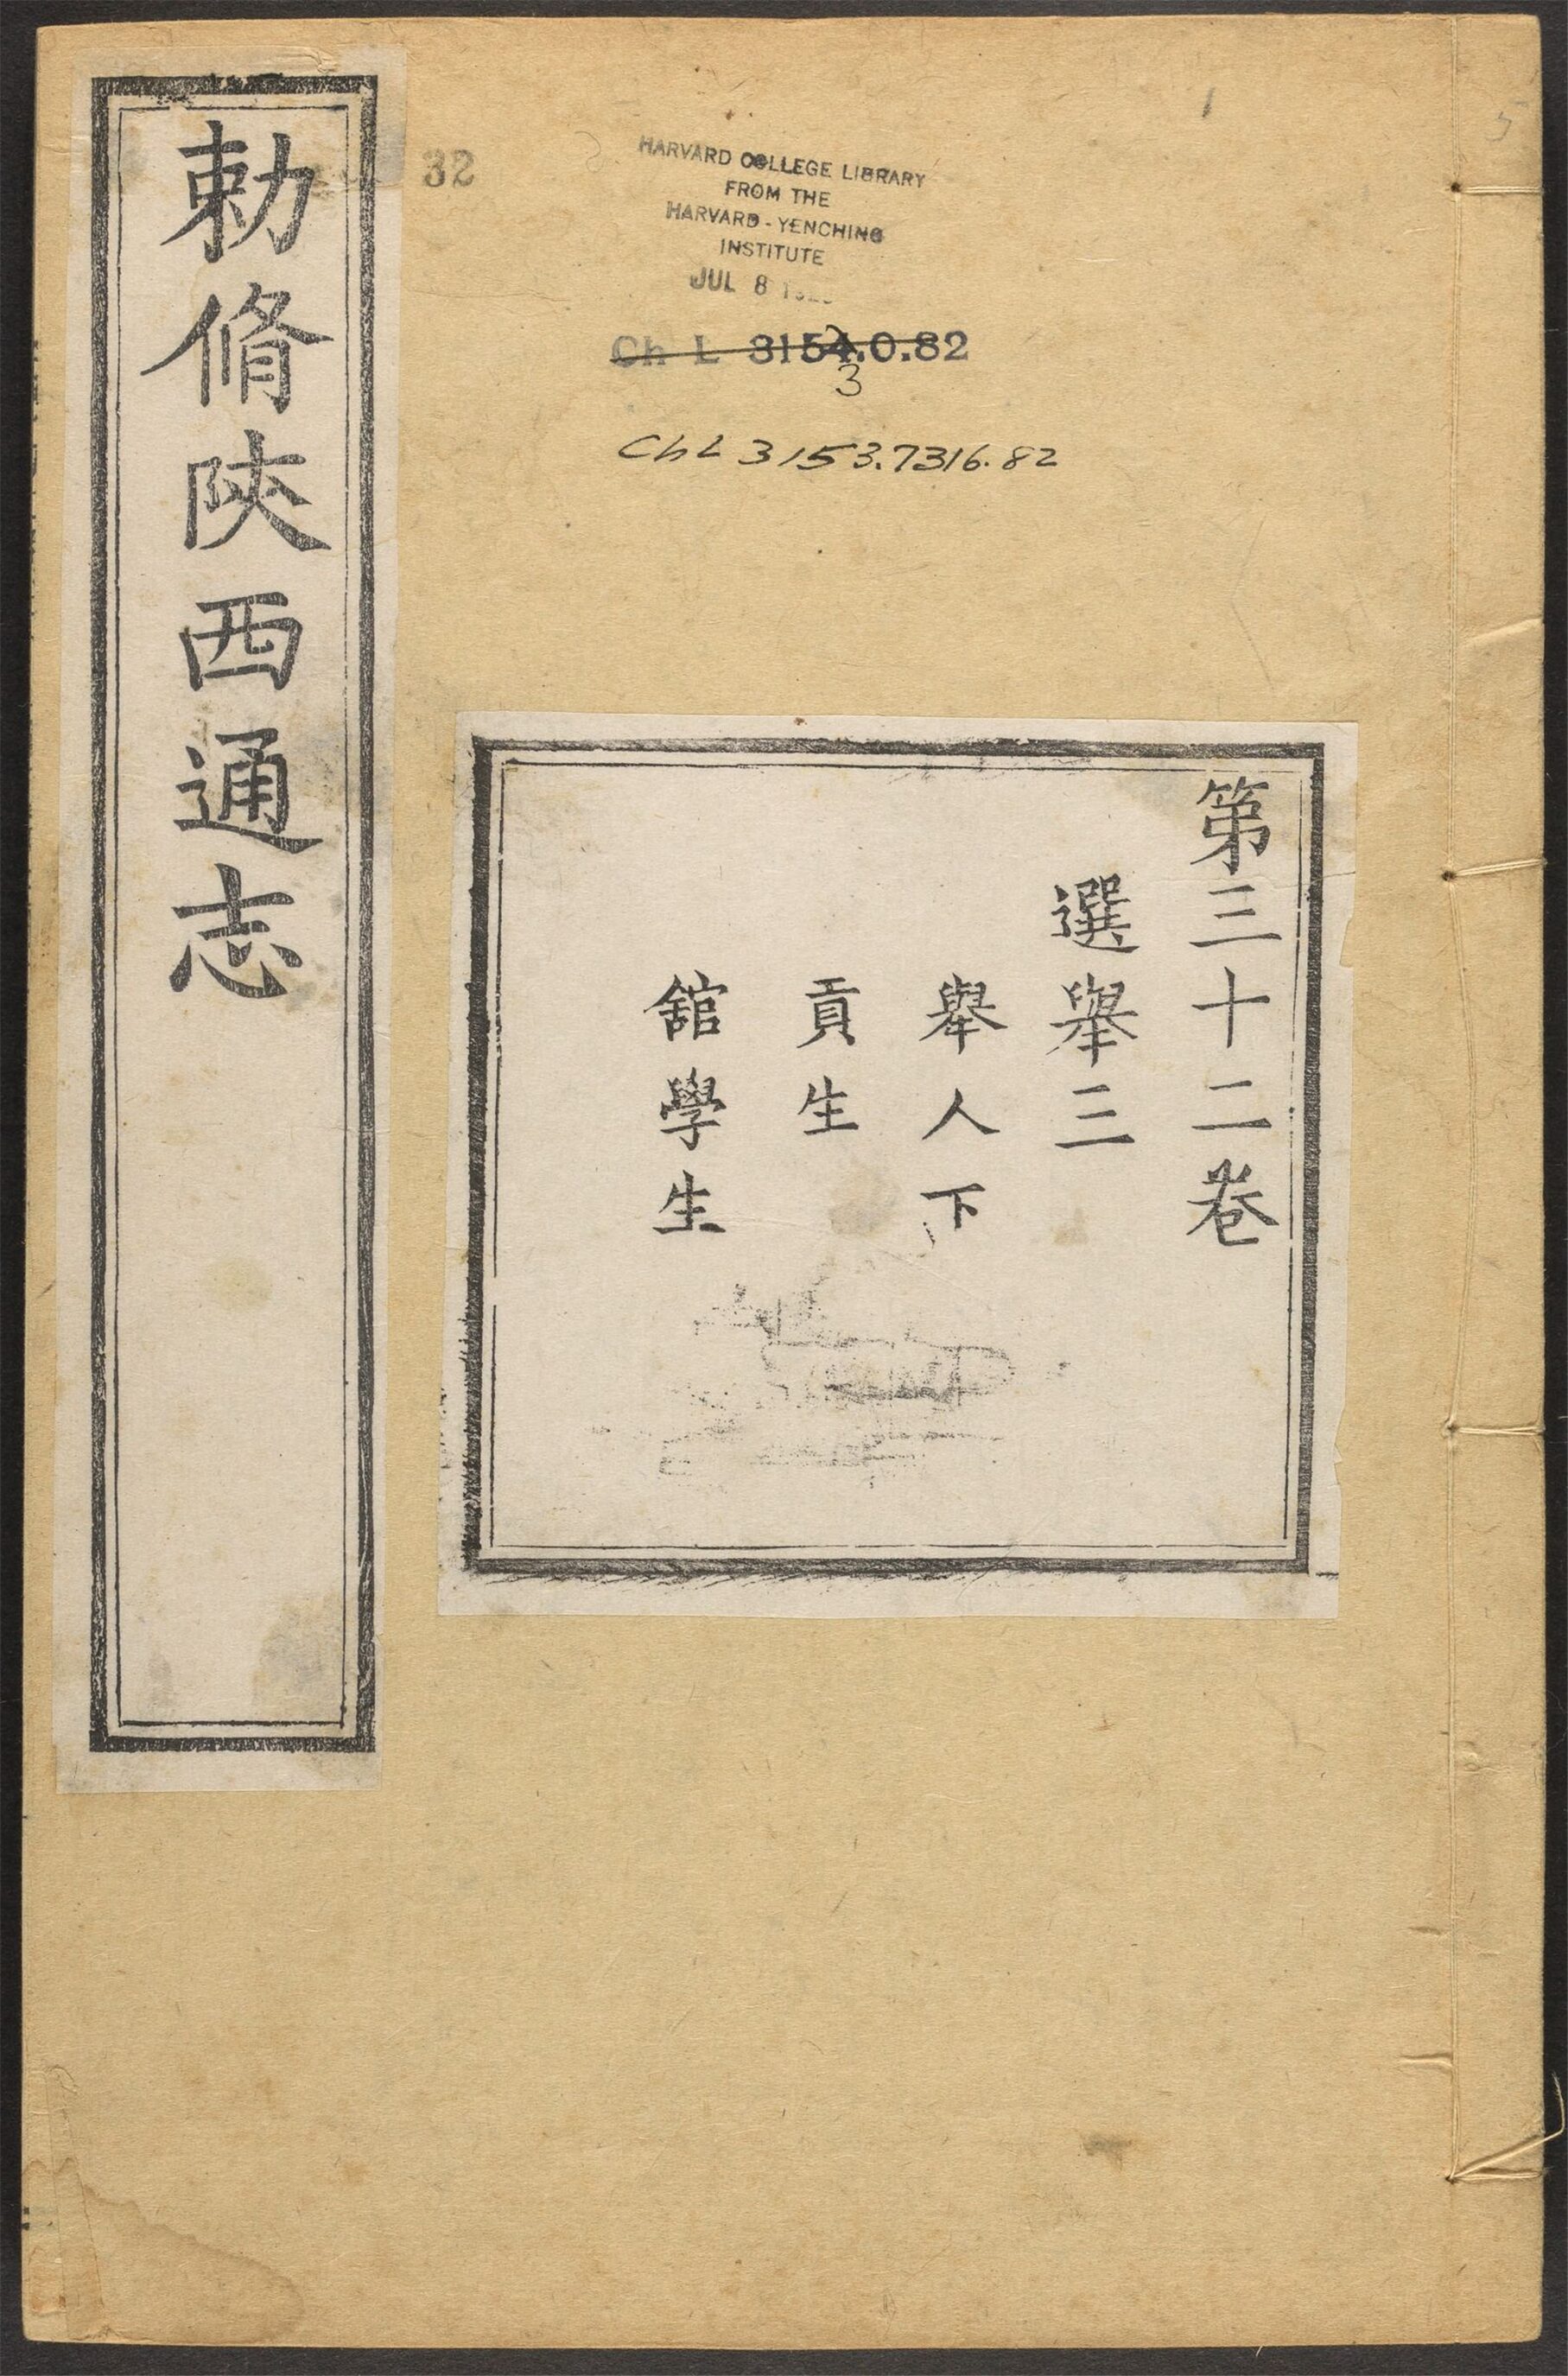 勅脩陝西通志
32
HARVARD COLLEGE LIBRARY
FROM THE
HARVARD-YENCHING
INSTITUTE
JUL 8
Ch L 3154.0.82
3
ChL 3153.7316.82
第三十二卷
選舉三
舉人下
貢生
舘學生